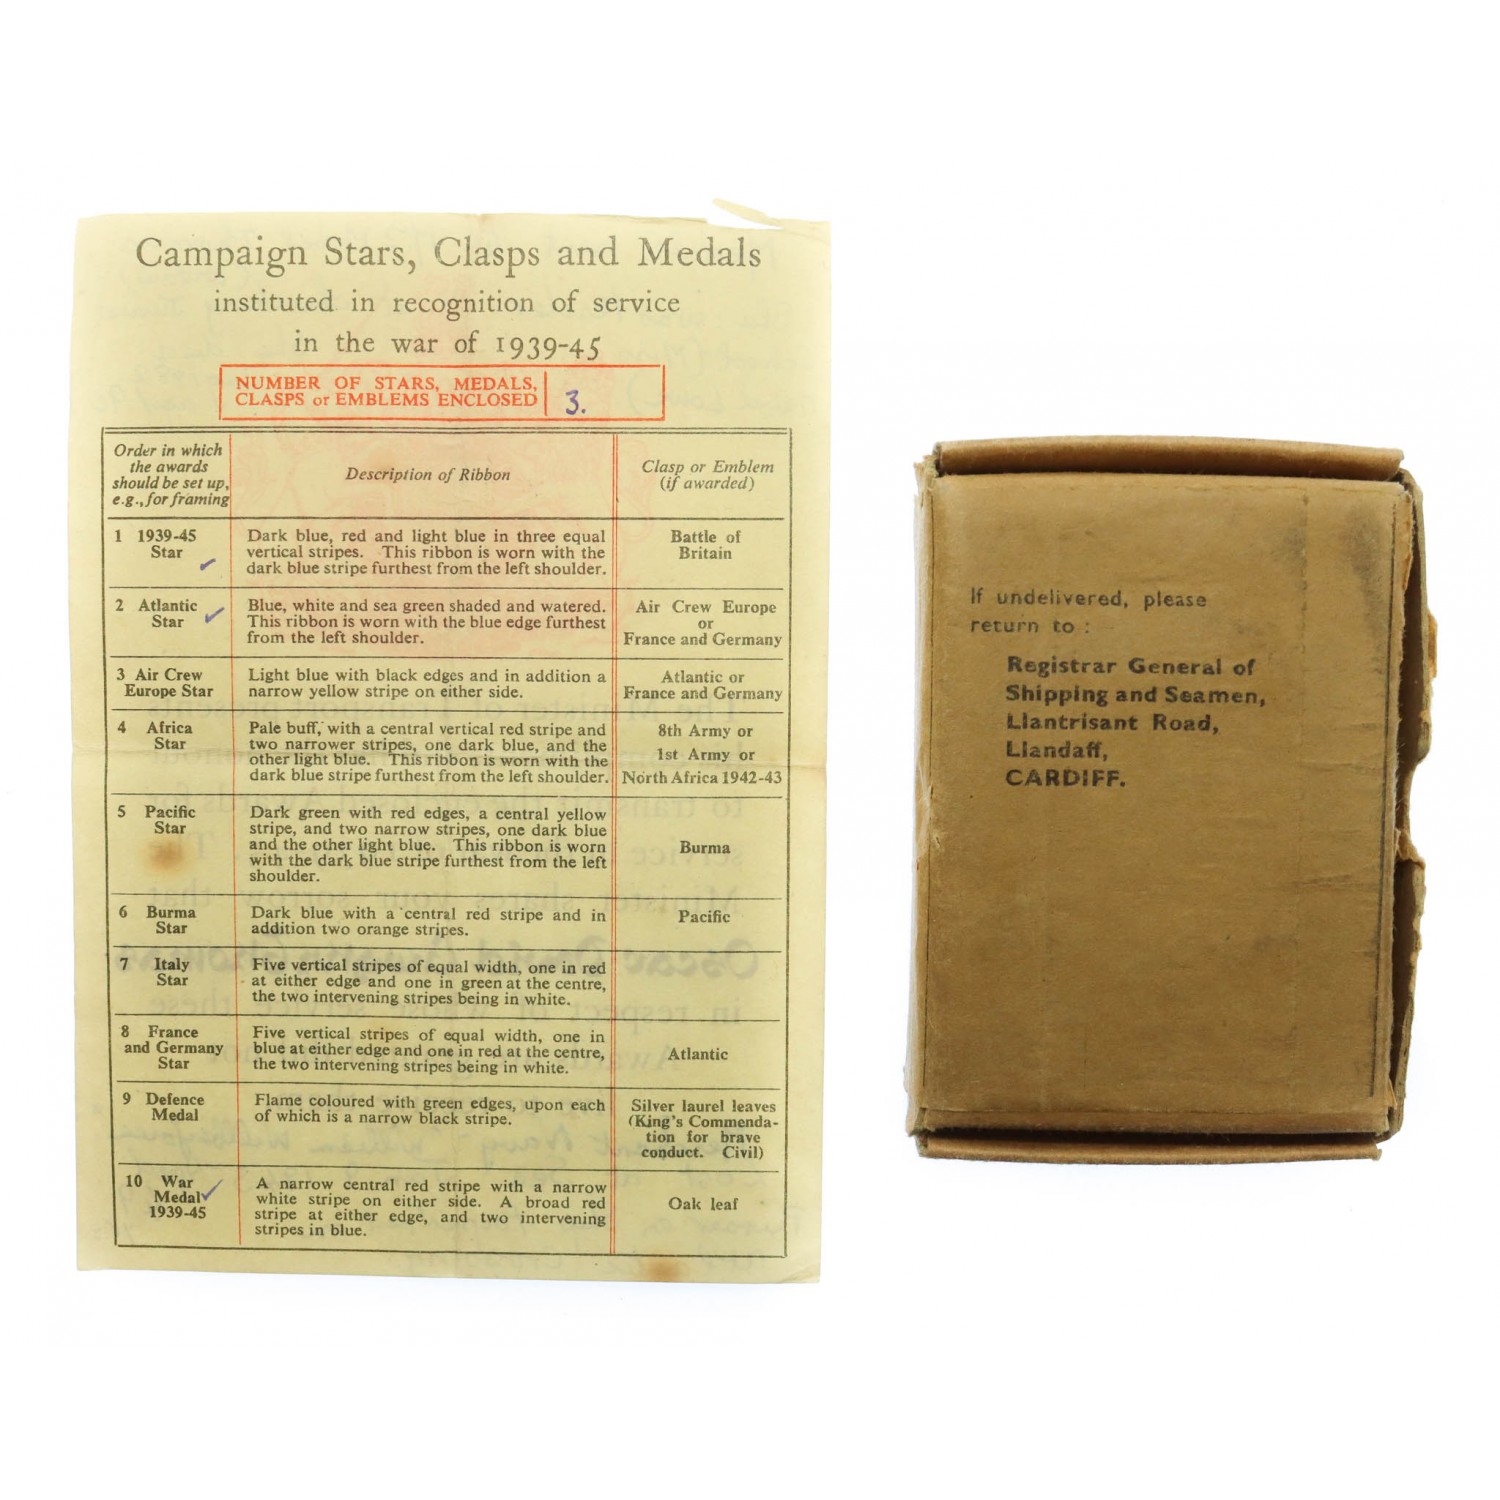 Campaign Stars, Clasps and Medals
instituted in recognition of service
in the war of 1939-45
NUMBER OF STARS, MEDALS,
CLASPS or EMBLEMS ENCLOSED
3.
Order in which
the awards
should be set up,
e.g., for framing
Description of Ribbon
Clasp or Emblem
(if awarded)
1 1939-45
Star
Dark blue, red and light blue in three equal
vertical stripes. This ribbon is worn with the
dark blue stripe furthest from the left shoulder.
Battle of
Britain
2 Atlantic
Star
Blue, white and sea green shaded and watered.
This ribbon is worn with the blue edge furthest
from the left shoulder.
Air Crew Europe
or
France and Germany
3 Air Crew
Europe Star
Light blue with black edges and in addition a
narrow yellow stripe on either side.
Atlantic or
France and Germany
4 Africa
Star
Pale buff, with a central vertical red stripe and
two narrower stripes, one dark blue, and the
other light blue. This ribbon is worn with the
dark blue stripe furthest from the left shoulder.
8th Army or
1st Army or
North Africa 1942-43
5 Pacific
Star
Dark green with red edges, a central yellow
stripe, and two narrow stripes, one dark blue
and the other light blue. This ribbon is worn
with the dark blue stripe furthest from the left
shoulder.
Burma
6 Burma
Star
Dark blue with a central red stripe and in
addition two orange stripes.
Pacific
7 Italy
Star
Five vertical stripes of equal width, one in red
at either edge and one in green at the centre,
the two intervening stripes being in white.
8 France
and Germany
Star
Five vertical stripes of equal width, one in
blue at either edge and one in red at the centre,
the two intervening stripes being in white.
Atlantic
9 Defence
Medal
Flame coloured with green edges, upon each
of which is a narrow black stripe.
Silver laurel leaves
(King's Commenda-
tion for brave
conduct. Civil)
10 War
Medal
1939-45
A narrow central red stripe with a narrow
white stripe on either side. A broad red
stripe at either edge, and two intervening
stripes in blue.
Oak leaf
If undelivered, please
return to :
Registrar General of
Shipping and Seamen,
Llantrisant Road,
Llandaff,
CARDIFF.